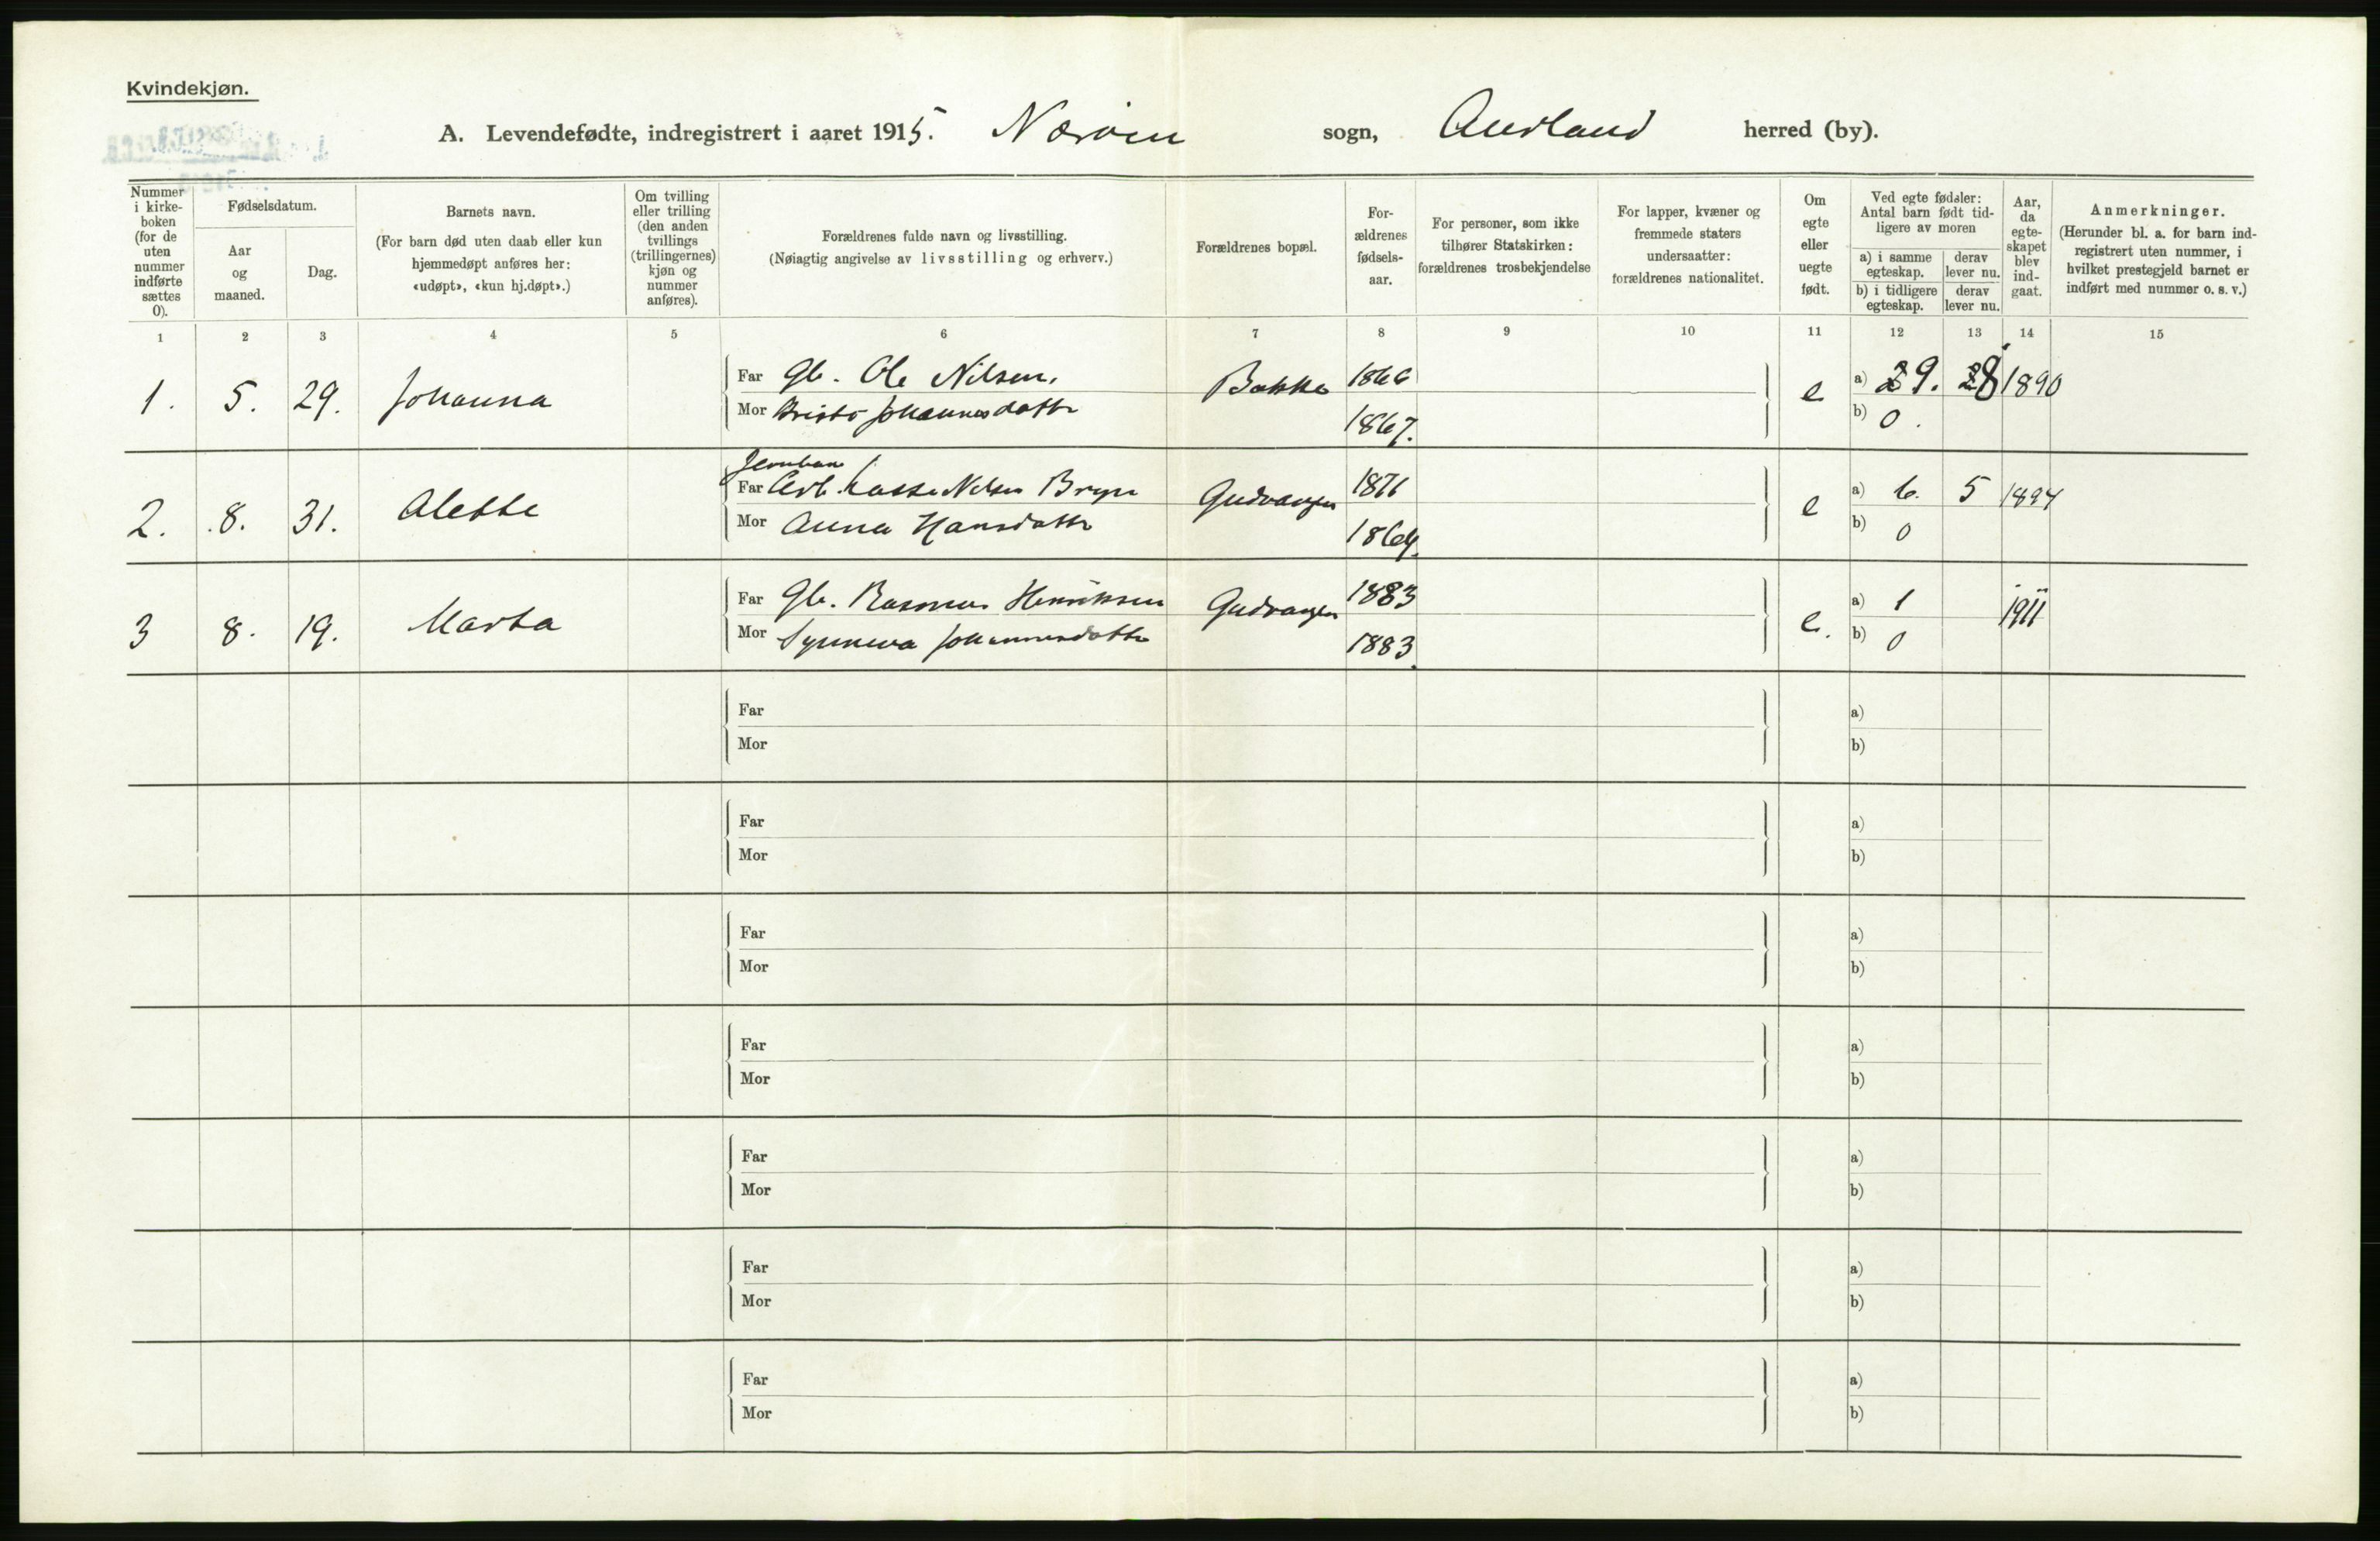 Kvindekjøn.
A. Levendefødte, indregistrert i aaret 1915. Nærøen sogn, Aurland herred (by).
Nummer i kirke-boken (for de uten nummer indførte sættes 0).
Fødselsdatum.
Aar og maaned.
Dag.
Barnets navn.
(For barn død uten daab eller kun hjemmedøpt anføres her: «udøpt», «kun hj.døpt».)
Om tvilling eller trilling (den anden tvillings (trillingernes) kjøn og nummer anføres).
Forældrenes fulde navn og livsstilling.
(Nøiagtig angivelse av livsstilling og erhverv.)
Forældrenes bopæl.
For-ældrenes fødsels-aar.
For personer, som ikke tilhører Statskirken: forældrenes trosbekjendelse
For lapper, kvæner og fremmede staters undersaatter: forældrenes nationalitet.
Om egte eller uegte født.
Ved egte fødsler: Antal barn født tid-ligere av moren
a) i samme egteskap.
derav lever nu.
b) i tidligere egteskap.
derav lever nu.
Aar, da egte-skapet blev ind-gaat.
Anmerkninger.
(Herunder bl. a. for barn ind-registrert uten nummer, i hvilket prestegjeld barnet er indført med nummer o. s. v.)
1 2 3 4 5 6 7 8 9 10 11 12 13 14 15
1. 5. 29. Johanna Far Gb. Ole Nilsen. Bakke 1866 e a) 9. 8 1890
Mor Brita Johannesdatter 1867. b) 0.
2. 8. 31. Alette Far Arb. Lasse Nilsen Gudvangen 1871 e a) 6. 5 1894
Mor Anna Hansdatter 1869. b) 0
3 8. 19. Marta Far Gb. Rasmus Henriksen Gudvangen 1883 e. a) 1 1911
Mor Synneva Johannesdatter 1883. b) 0
Far a)
Mor b)
Far a)
Mor b)
Far a)
Mor b)
Far a)
Mor b)
Far a)
Mor b)
Far a)
Mor b)
Far a)
Mor b)